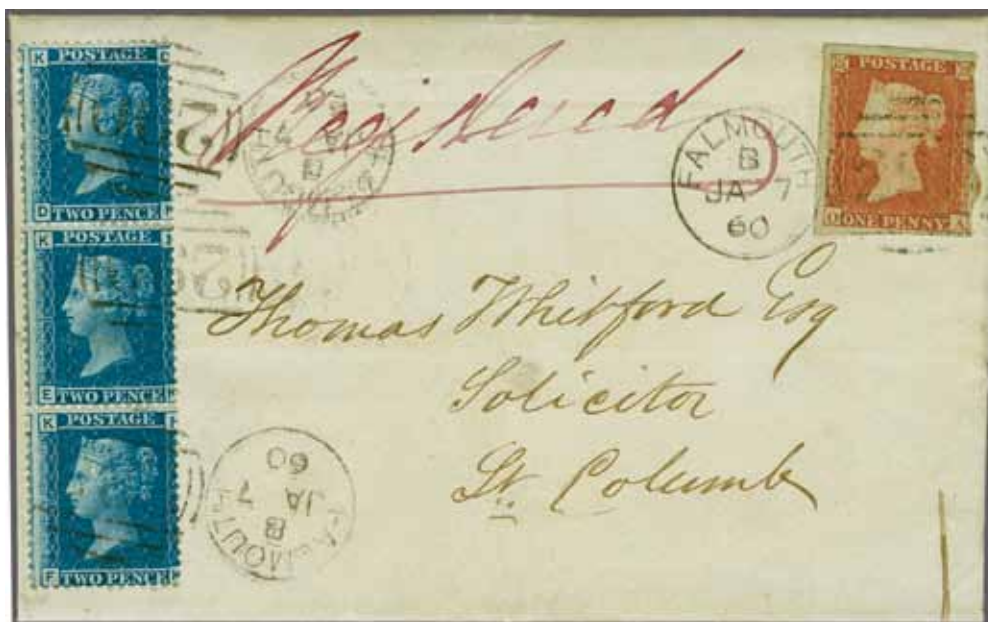 K
POSTAGE
D
TWO PENCE
K
POSTAGE
E
TWO PENCE
K
POSTAGE
F
TWO PENCE
Registered
FALMOUTH
B
JA 7
60
POSTAGE
O
ONE PENNY
A
Thomas Whitford Esq
Solicitor
St. Columb
FALMOUTH
B
JA 7
60